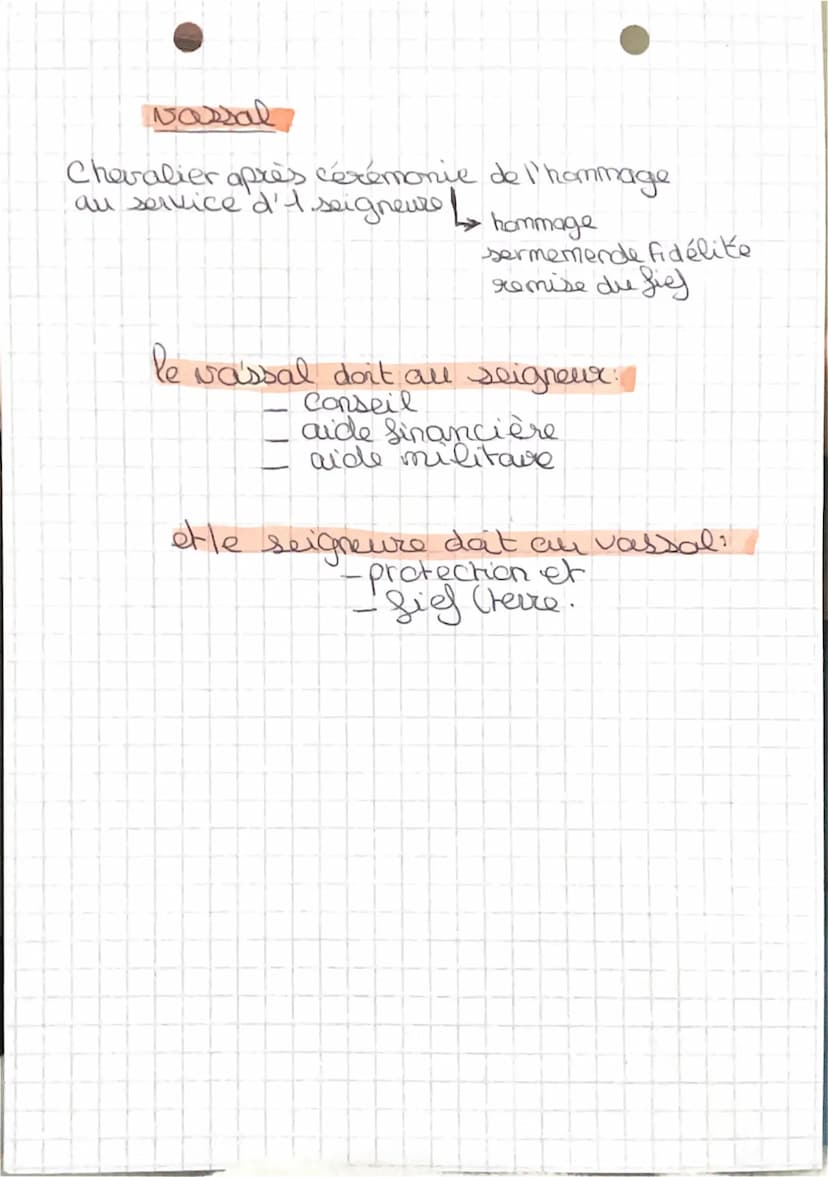 vassal
Chevalier après cérémonie de l'hommage
au service d'1 seigneure
↳ hommage
sermemende fidélité
remise du fief
le vassal doit au seigneur:
_ Conseil
_ aide financière
_ aide militaire
et le seigneure doit au vassal:
- protection et
- fief (terre.